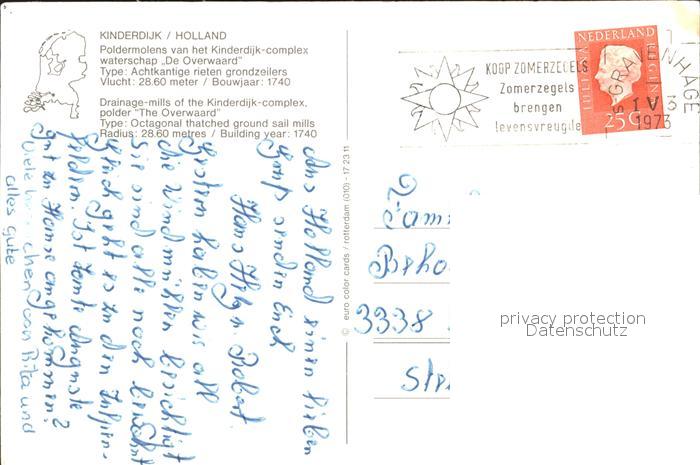 KINDERDIJK / HOLLAND
Poldermolens van het Kinderdijk-complex
waterschap „De Overwaard"
Type: Achtkantige rieten grondzeilers
Vlucht: 28.60 meter / Bouwjaar: 1740
Drainage-mills of the Kinderdijk-complex,
polder "The Overwaard"
Type: Octagonal thatched ground sail mills
Radius: 28.60 metres / Building year: 1740
KOOP ZOMERZEGELS
Zomerzegels
brengen
levensvreugde
'S GRAVENHAGE
1 V
1973
NEDERLAND
25c
© euro color cards / rotterdam (010) - 17 23 11
Aus Holland einen lieben
senden Euch
Hans Robert.
Gestern haben wir all
die Windmühlen besichtigt
Sie sind alle noch bewohnt
Gleich geht es zu den Tulpen-
feldern. Ist Tante
gut zu Hause angekommen?
Viele von Rita und
alles gute
Fam
3338
privacy protection
Datenschutz